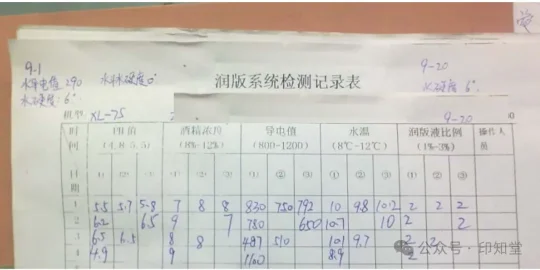 9-1
水导电值 290 水硬度 0°
水硬度: 6°
润版系统检测记录表
9-20
水硬度 6°
机型 XL-75
9-20
时间 PH值 酒精浓度 导电值 水温 润版液比例 操作人员
(4.8-5.5) (8%-12%) (800-1200) (8℃-12℃) (1%-3%)
日期 ① ② ③ ① ② ③ ① ② ③ ① ② ③ ① ② ③
1 5.5 5.7 5.8 7 8 8 830 750 792 10 9.8 10.2 2 2 2
2 6.2 6.5 9 7 780 650 10.7 10 2 2
3 6.5 6.5 8 8 487 510 10.1 9.7 2 2
4 4.9 9 1100 8.9 2
公众号·印知堂